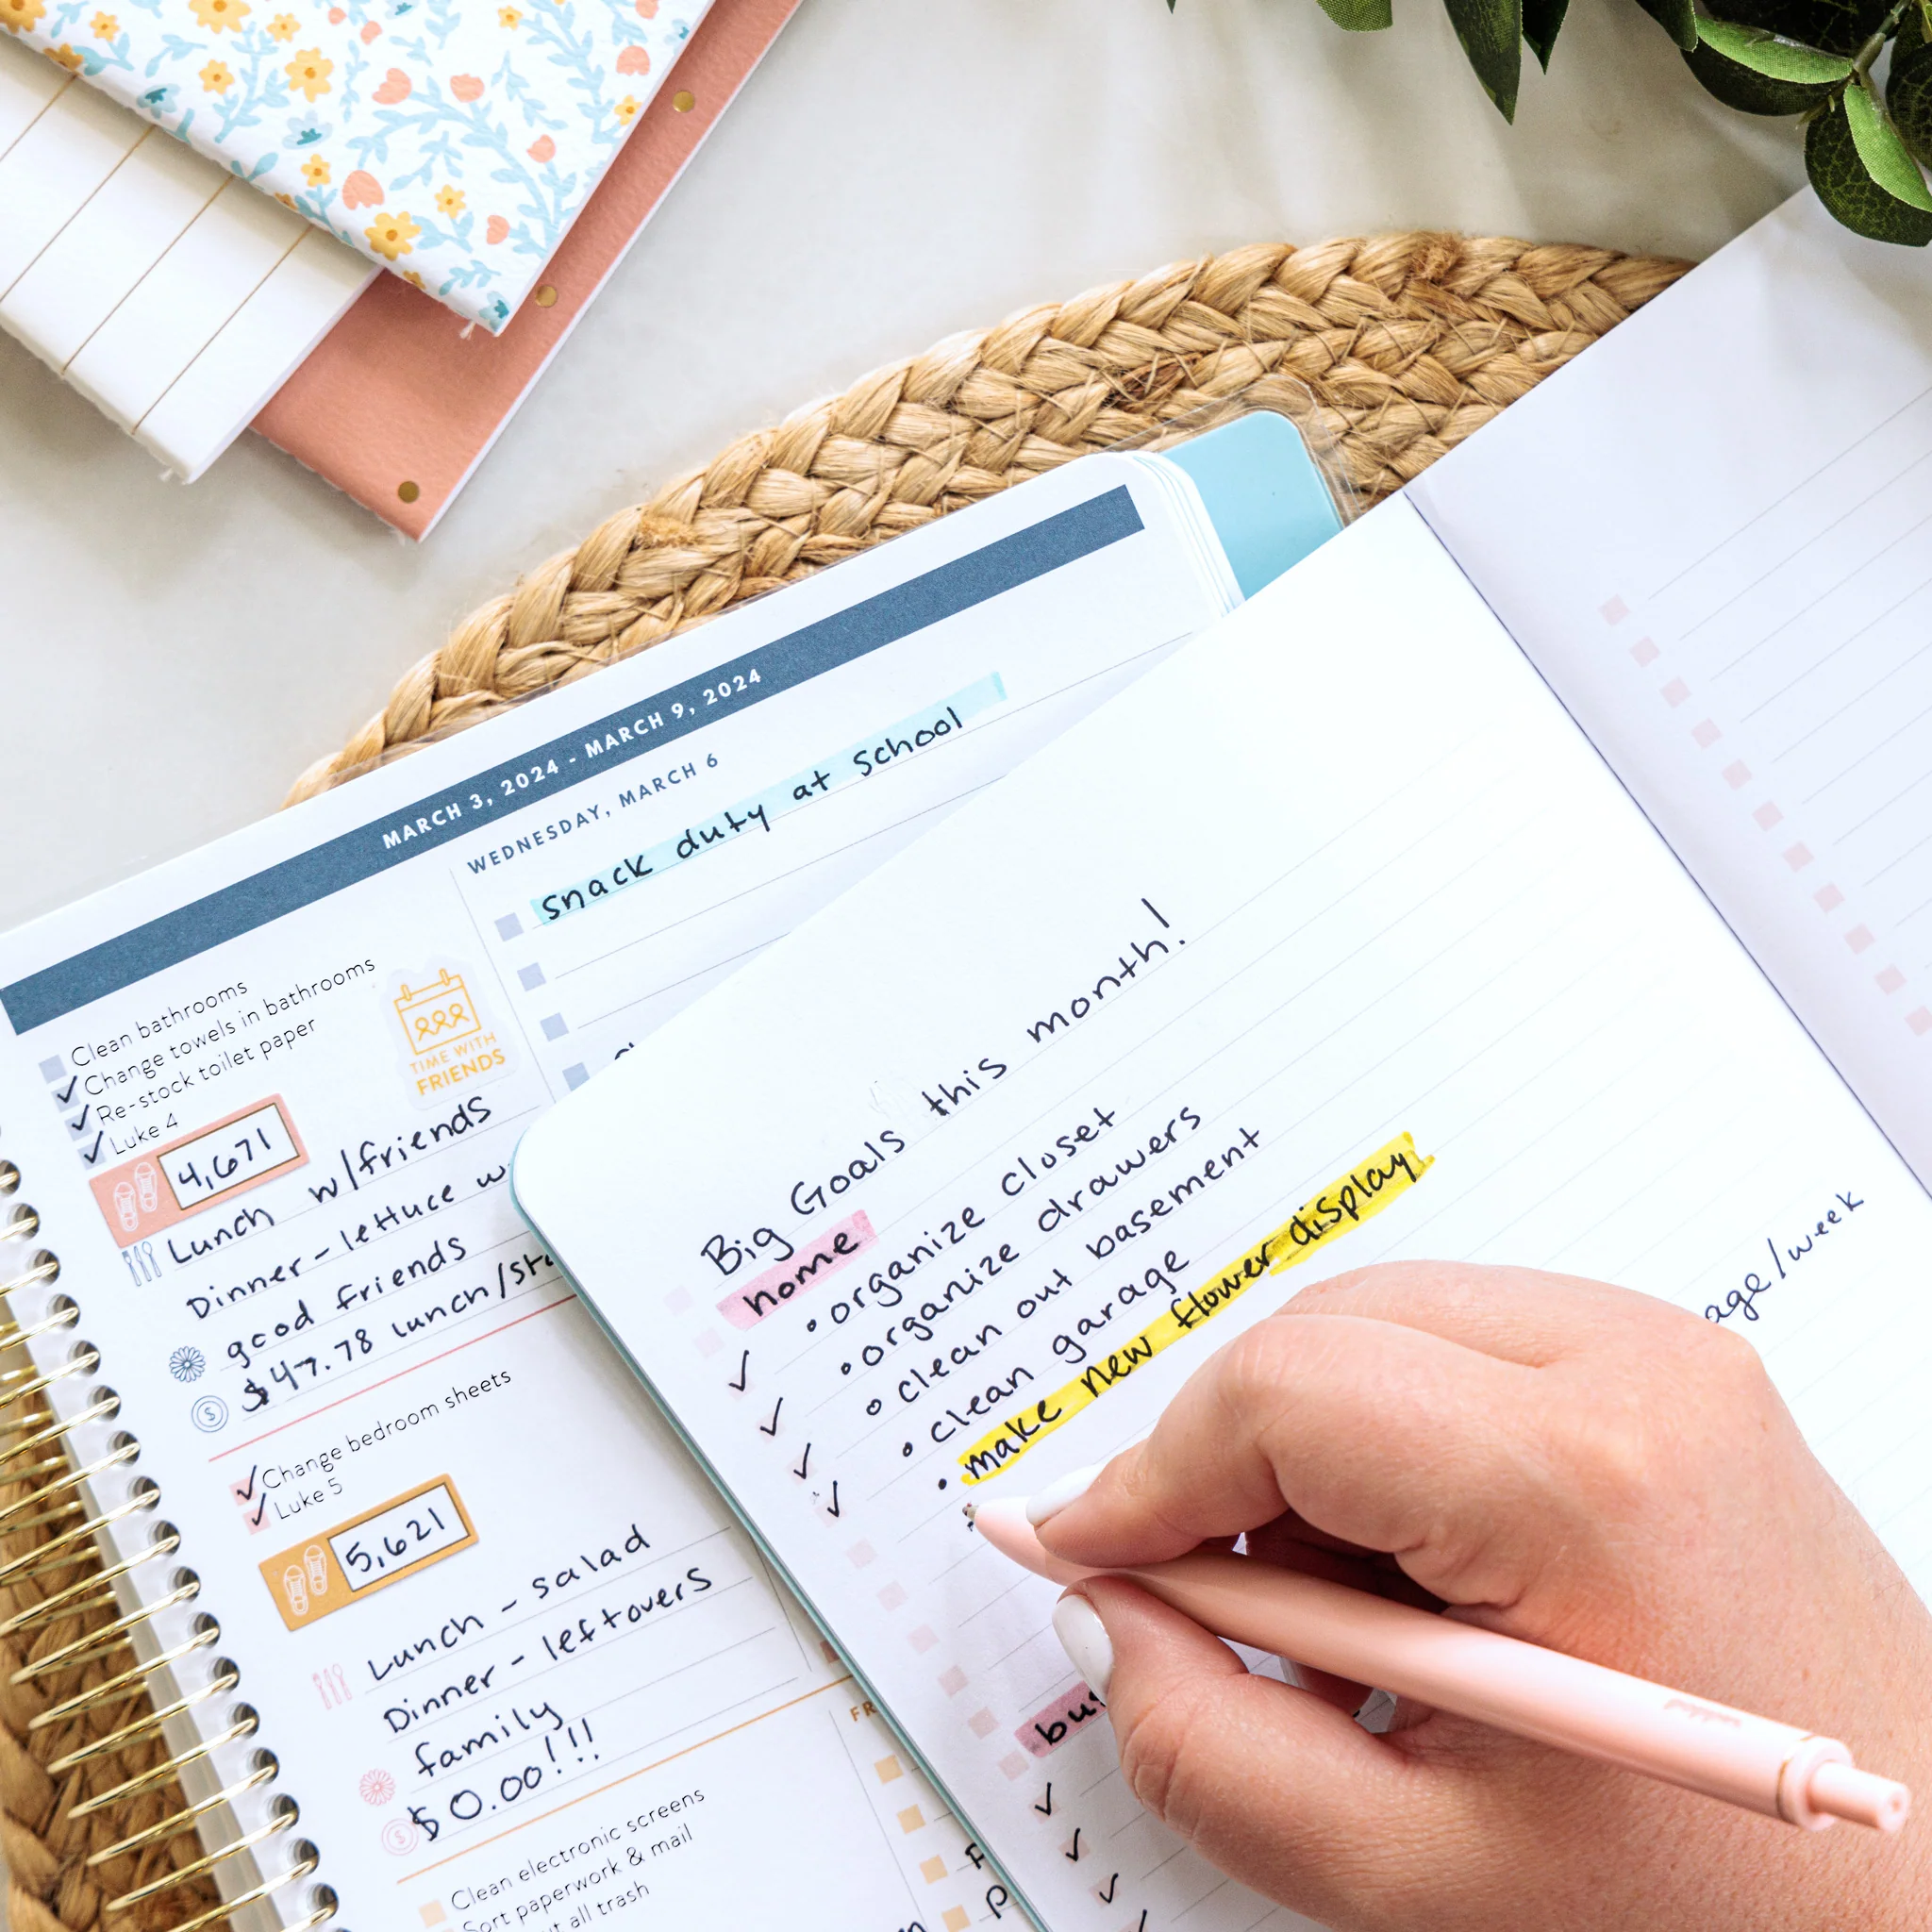 MARCH 3, 2024 - MARCH 9, 2024
WEDNESDAY, MARCH 6
snack duty at school
Clean bathrooms
Change towels in bathrooms
Re-stock toilet paper
Luke 4
TIME WITH
FRIENDS
4,671
Lunch w/friends
Dinner - lettuce
good friends
$47.78 lunch/
Change bedroom sheets
Luke 5
5,621
Lunch - salad
Dinner - leftovers
family
$0.00!!!
Clean electronic screens
Sort paperwork & mail
all trash
Big Goals this month!
home
• organize closet
• organize drawers
• clean out basement
• clean garage
• make new flower display
/week